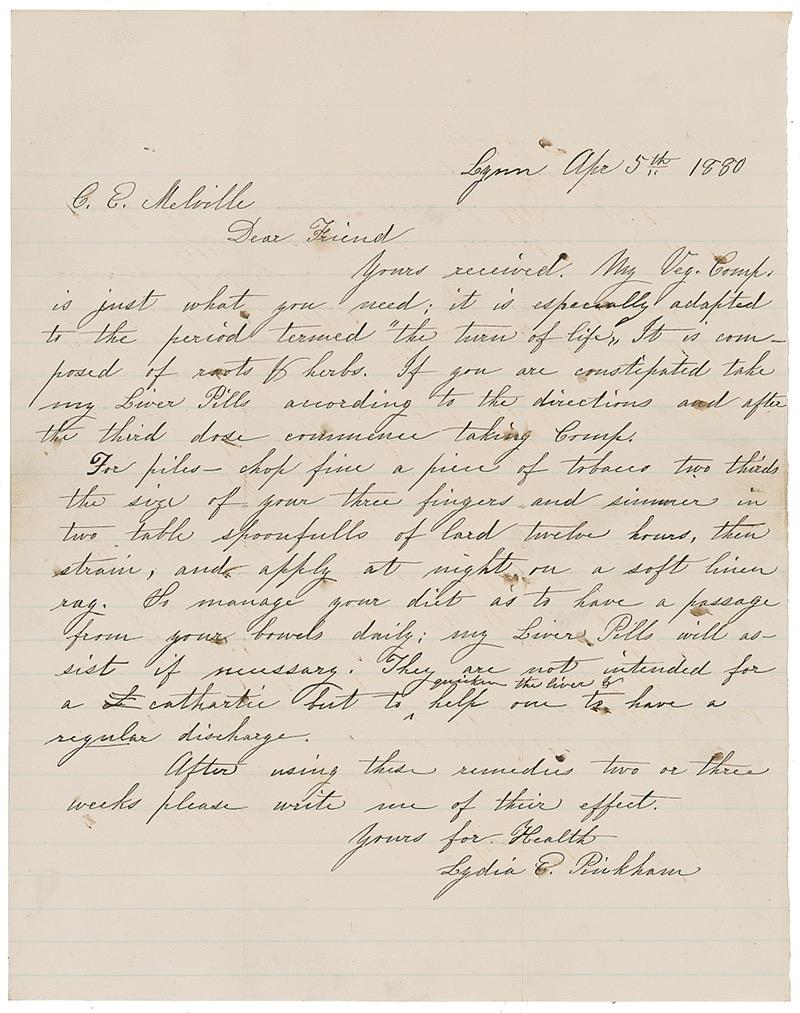 Lynn Apr 5th 1880
C. E. Melville
Dear Friend
Yours received. My Veg. Comp.
is just what you need; it is especially adapted
to the period termed "the turn of life," It is com-
posed of roots & herbs. If you are constipated take
my Liver Pills according to the directions and after
the third dose commence taking Comp.
For piles - chop fine a piece of tobacco two thirds
the size of your three fingers and simmer in
two table spoonfulls of lard twelve hours, then
strain, and apply at night on a soft linen
rag. So manage your diet as to have a passage
from your bowels daily; my Liver Pills will as-
sist if necessary. They are not intended for
quicken the liver &
a cathartic but to ^ help one to have a
regular discharge.
After using these remedies two or three
weeks please write me of their effect.
Yours for Health
Lydia E. Pinkham